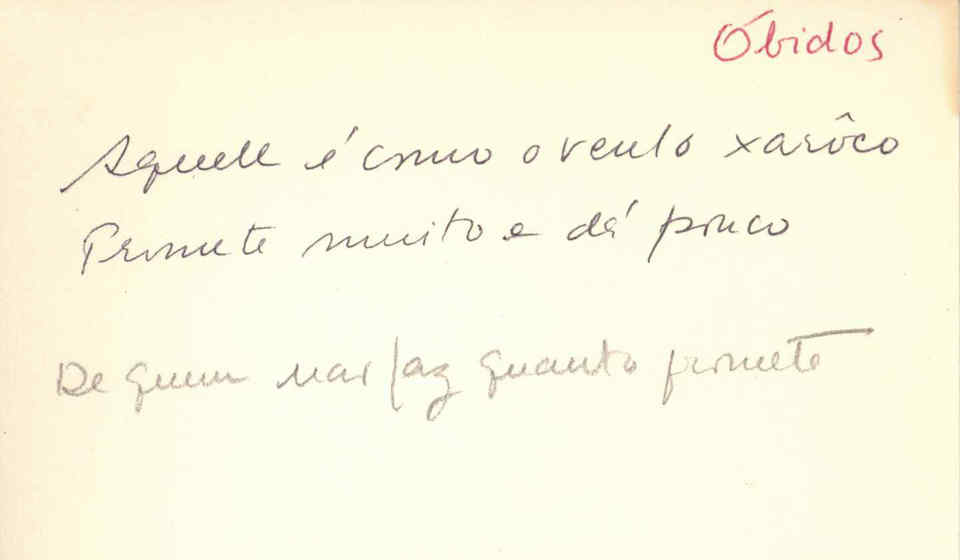 Óbidos
Aquelle é como o vento xarôco
Promete muito e dá pouco
De quem não faz quanto promete